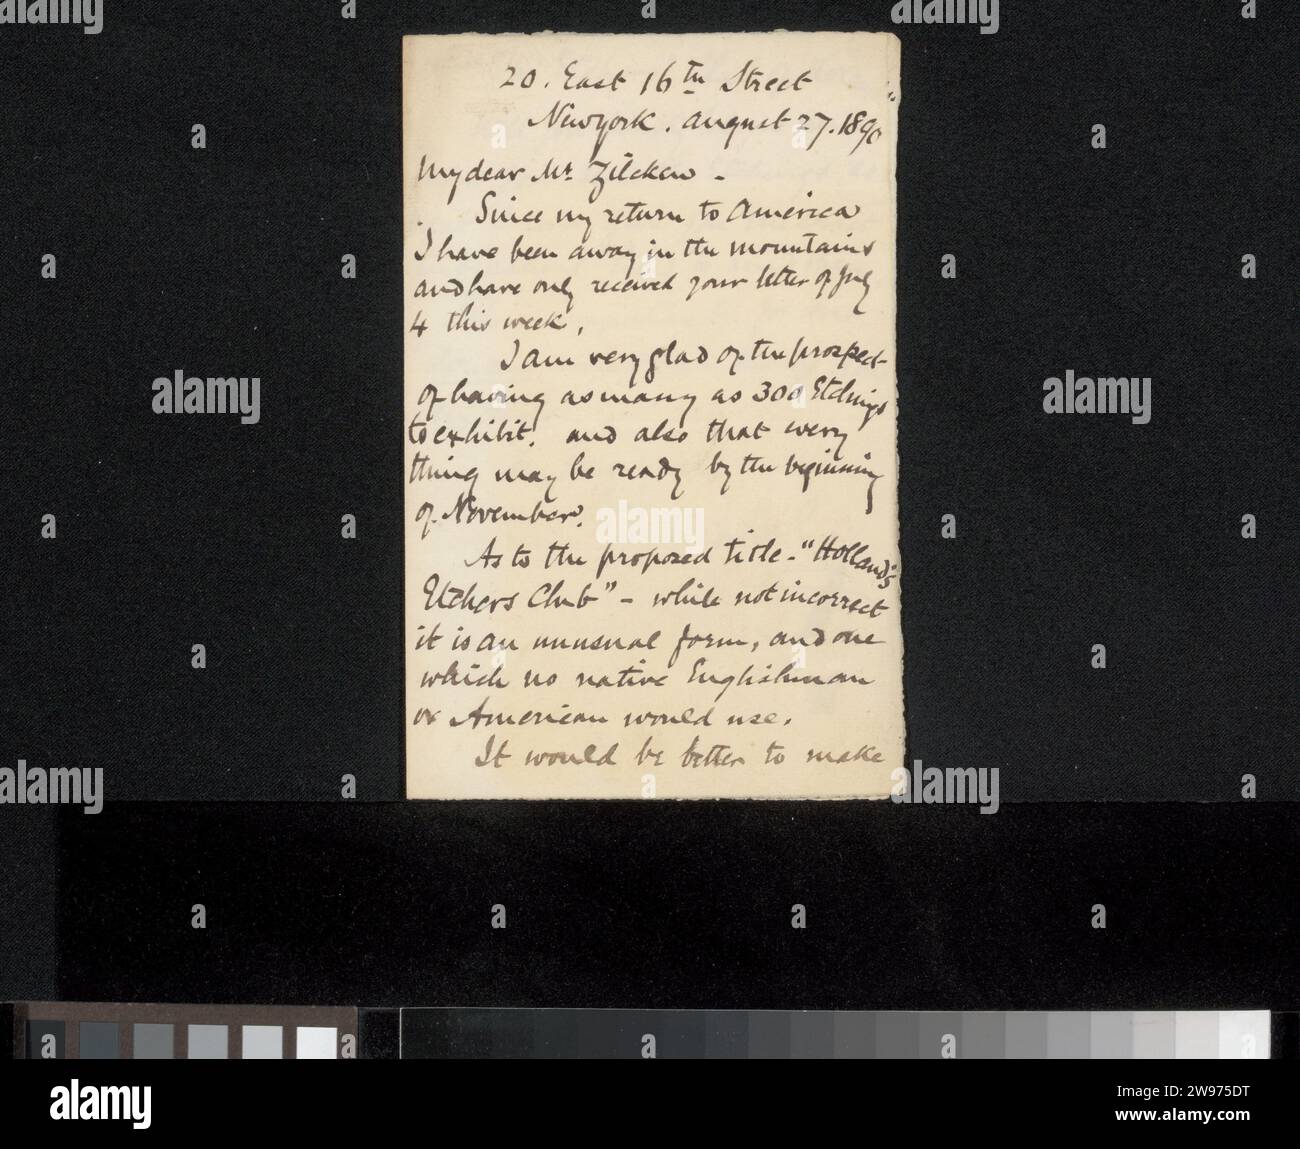 20. East 16th Street
New york. august 27. 1890
My dear Mr. Zilcken -
Since my return to America
I have been away in the mountains
and have only received your letter of July
4 this week.
I am very glad of the prospect
of having as many as 300 Etchings
to exhibit. and also that every
thing may be ready by the beginning
of November.
As to the proposed title - "Holland's
Etchers Club" - while not incorrect
it is an unusual form, and one
which no native Englishman
or American would use.
It would be better to make
alamy
Image ID: 2W975DT
www.alamy.com